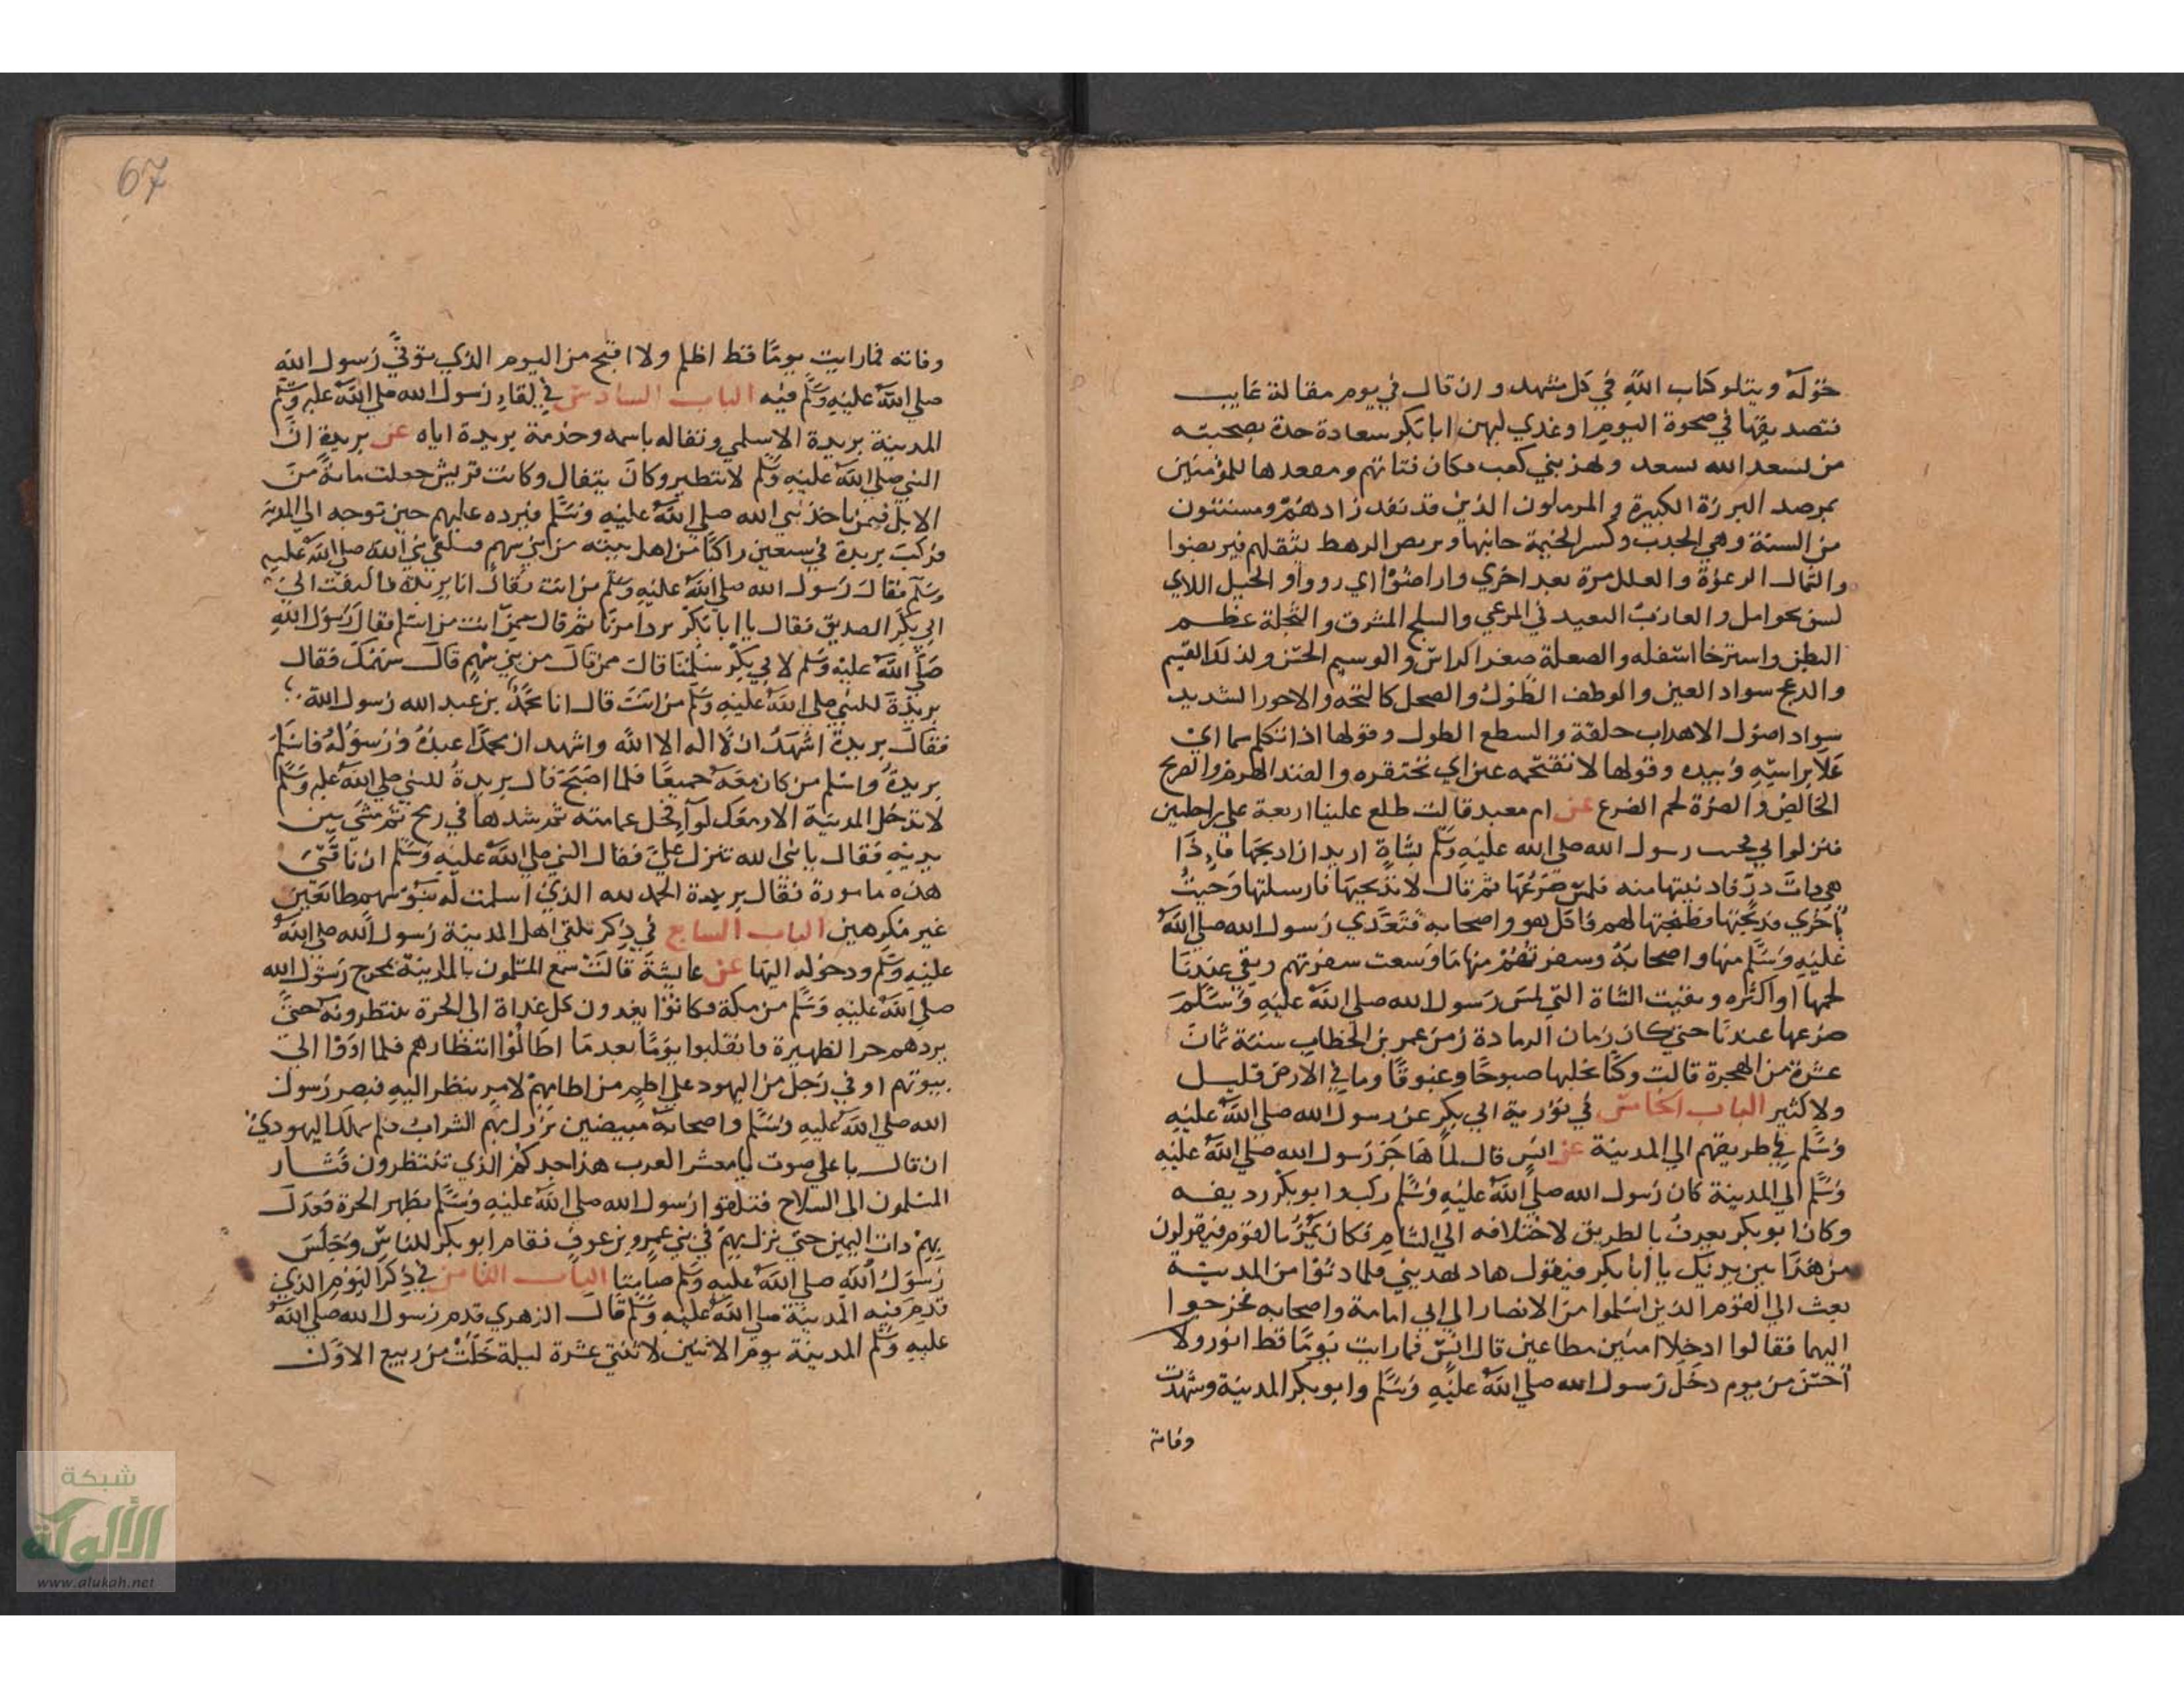 حوله ويتلو كتاب الله في كل مشهد وان قال في يوم مقالة غايب
فتصديقها في ضحوة اليوم او غدي ليهن ابا بكر سعادة جده بصحبته
من يسعد الله يسعد وليهن بني كعب مكان فتاتهم ومقعدها للمؤمنين
بمرصد البرزة الكبيرة والمرملون الذين قد نفد زادهم ومسنتون
من السنة وهي الجدب وكسر الخيمة جانبها وبربض الرهط يثقلهم فيربضوا
والثمال الرغوة والعلل مرة بعد اخري واراضوا اي رووا والحيل اللاي
لسن بحوامل والعازب البعيد في المرعي والبلج المشرق والثجلة عظم
البطن واسترخا اسفله والصعلة صغر الراس والوسيم الحسن وكذلك القسيم
والدعج سواد العين والوطف الطول والصحل كالبحه والاحور الشديد
سواد اصول الاهداب خلقة والسطع الطول وقولها اذا تكلم سما اي
علا براسه وبيده وقولها لا تقتحمه عين اي تحتقره والفند الهرم والصريح
الخالص والضرة لحم الضرع عن ام معبد قالت طلع علينا اربعة علي راحلتين
فنزلوا بي فجيت رسول الله صلي الله عليه وسلم بشاة اريد ان اذبحها فاذا
هي ذات در فادنيتها منه فلمس ضرعها ثم قال لا تذبحيها فارسلتها وجيت
باخري فذبحتها وطبختها لهم فاكل هو واصحابه فتغدي رسول الله صلي الله
عليه وسلم منها واصحابه وسفرتهم منها ما وسعت سفرتهم وبقي عندنا
لحمها او اكثره وبقيت الشاة التي لمس رسول الله صلي الله عليه وسلم
ضرعها عندنا حتي كان زمان الرمادة زمن عمر بن الخطاب سنة ثمان
عشرة من الهجرة قالت وكنا نحلبها صبوحا وغبوقا وما في الارض قليل
ولا كثير الباب الخامس في تورية ابي بكر عن رسول الله صلي الله عليه
وسلم في طريقهم الي المدينة عن انس قال لما هاجر رسول الله صلي الله عليه
وسلم الي المدينة كان رسول الله صلي الله عليه وسلم ركب وابو بكر رديفه
وكان ابو بكر يعرف بالطريق لاختلافه الي الشام فكان يمر بالقوم فيقولون
من هذا بين يديك يا ابا بكر فيقول هاد يهديني فلما دنوا من المدينة
بعث الي القوم الذين اسلموا من الانصار الي ابي امامة واصحابه فخرجوا
اليهما فقالوا ادخلا امنين مطاعين قال انس فما رايت يوما قط انور ولا
احسن من يوم دخل رسول الله صلي الله عليه وسلم وابو بكر المدينة وشهدت
وفاته
67
وفاته فما رايت يوما قط اظلم ولا اقبح من اليوم الذي توفي رسول الله
صلي الله عليه وسلم فيه الباب السادس في لقاء رسول الله صلي الله عليه وسلم
المدينة بريدة الاسلمي وتفاله باسمه وخدمة بريدة اياه عن بريدة ان
النبي صلي الله عليه وسلم لا يتطير وكان يتفال وكانت قريش جعلت ماية من
الابل فيمن ياخذ نبي الله صلي الله عليه وسلم فيرده عليهم حين توجه الي المدينة
فركب بريدة في سبعين راكبا من اهل بيته من بني سهم فتلقي نبي الله صلي الله عليه
وسلم فقال رسول الله صلي الله عليه وسلم من انت فقال انا بريدة فالتفت الي
ابي بكر الصديق فقال يا ابا بكر برد امرنا ثم قال ممن انت من اسلم فقال رسول الله
صلي الله عليه وسلم لابي بكر سلمنا قال ممن قال من بني سهم قال سهمك فقال
بريدة للنبي صلي الله عليه وسلم من انت قال انا محمد بن عبد الله رسول الله
فقال بريدة اشهد ان لا اله الا الله واشهد ان محمدا عبده ورسوله فاسلم
بريدة واسلم من كان معه جميعا فلما اصبح قال بريدة للنبي صلي الله عليه وسلم
لا تدخل المدينة الا ومعك لوا فحل عمامته ثم شدها في رمح ثم مشي بين
يديه فقال يا نبي الله تنزل علي فقال النبي صلي الله عليه وسلم ان ناقتي
هذه مامورة فقال بريدة الحمد لله الذي اسلمت له بنو سهم طايعين
غير مكرهين الباب السابع في ذكر تلقي اهل المدينة رسول الله صلي الله
عليه وسلم ودخوله اليها عن عايشة قالت سمع المسلمون بالمدينة بخرج رسول الله
صلي الله عليه وسلم من مكة وكانوا يغدون كل غداة الي الحرة ينتظرونه حتي
يردهم حر الظهيرة فانقلبوا يوما بعدما اطالوا انتظارهم فلما اووا الي
بيوتهم اوفي رجل من اليهود علي اطم من اطامهم لامر ينظر اليه فبصر رسول
الله صلي الله عليه وسلم واصحابه مبيضين يزول بهم الشراب فلم يملك اليهودي
ان قال باعلي صوت يا معشر العرب هذا جدكم الذي تنتظرون فثار
المسلمون الي السلاح فتلقوا رسول الله صلي الله عليه وسلم بظهر الحرة فعدل
بهم ذات اليمين حتي نزل بهم في بني عمرو بن عوف فقام ابو بكر للناس وجلس
رسول الله صلي الله عليه وسلم صامتا الباب الثامن في ذكر اليوم الذي
قدم فيه المدينة صلي الله عليه وسلم قال الزهري قدم رسول الله صلي الله
عليه وسلم المدينة يوم الاثنين لاثنتي عشرة ليلة خلت من ربيع الاول
شبكة
الألوكة
www.alukah.net